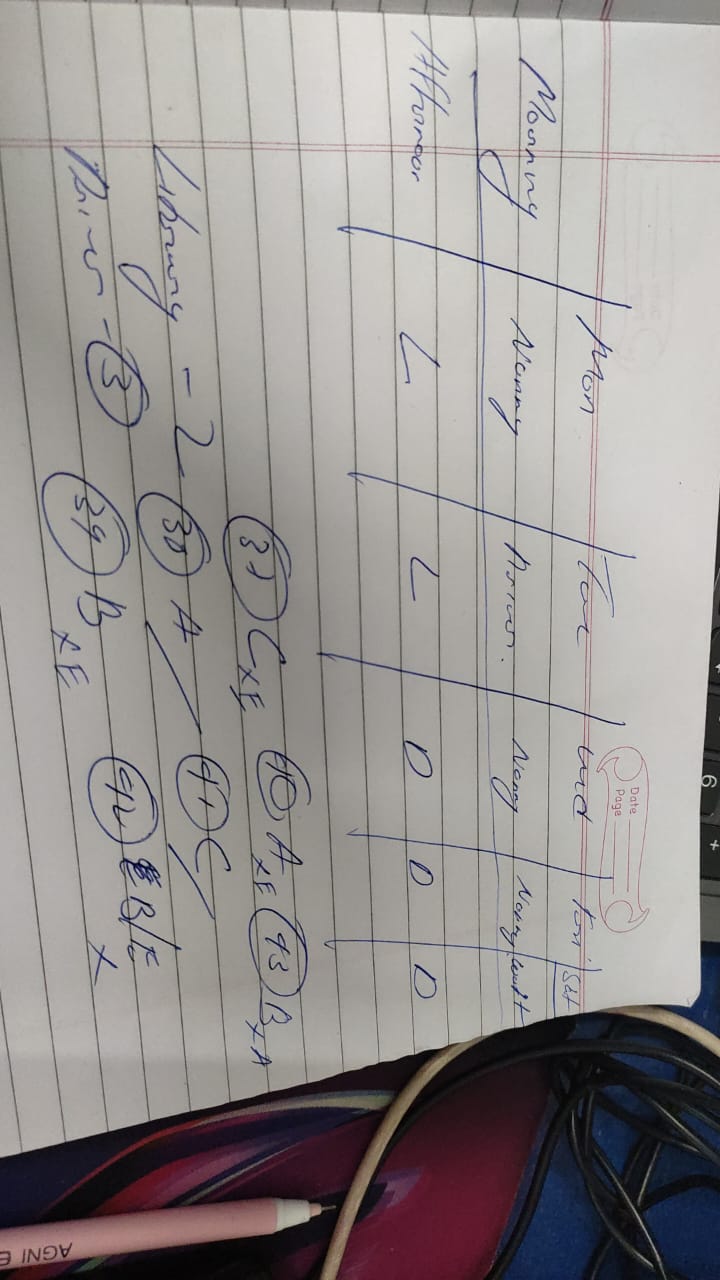 Date
Page
Mon Tue Wed Fri Sat
Morning Nanny Nanny Nanny
Afternoon L L D D D
37 C x E 40 A x E 43 B x A
Library - 2 38 A 41 C
- 3 39 B x E 42 B/E x
6 +
AGNI